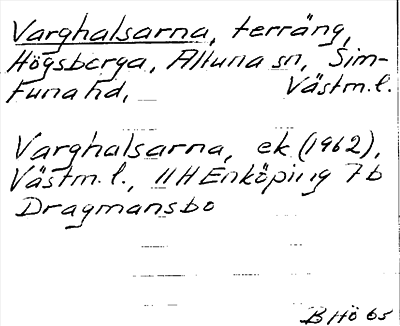 Varghalsarna, terräng,
Högsberga, Altuna sn, Sim-
tuna hd, Västm. l.
Varghalsarna, ek (1962),
Västm. l., 11 H Enköping 7b
Dragmansbo
B Hö 65